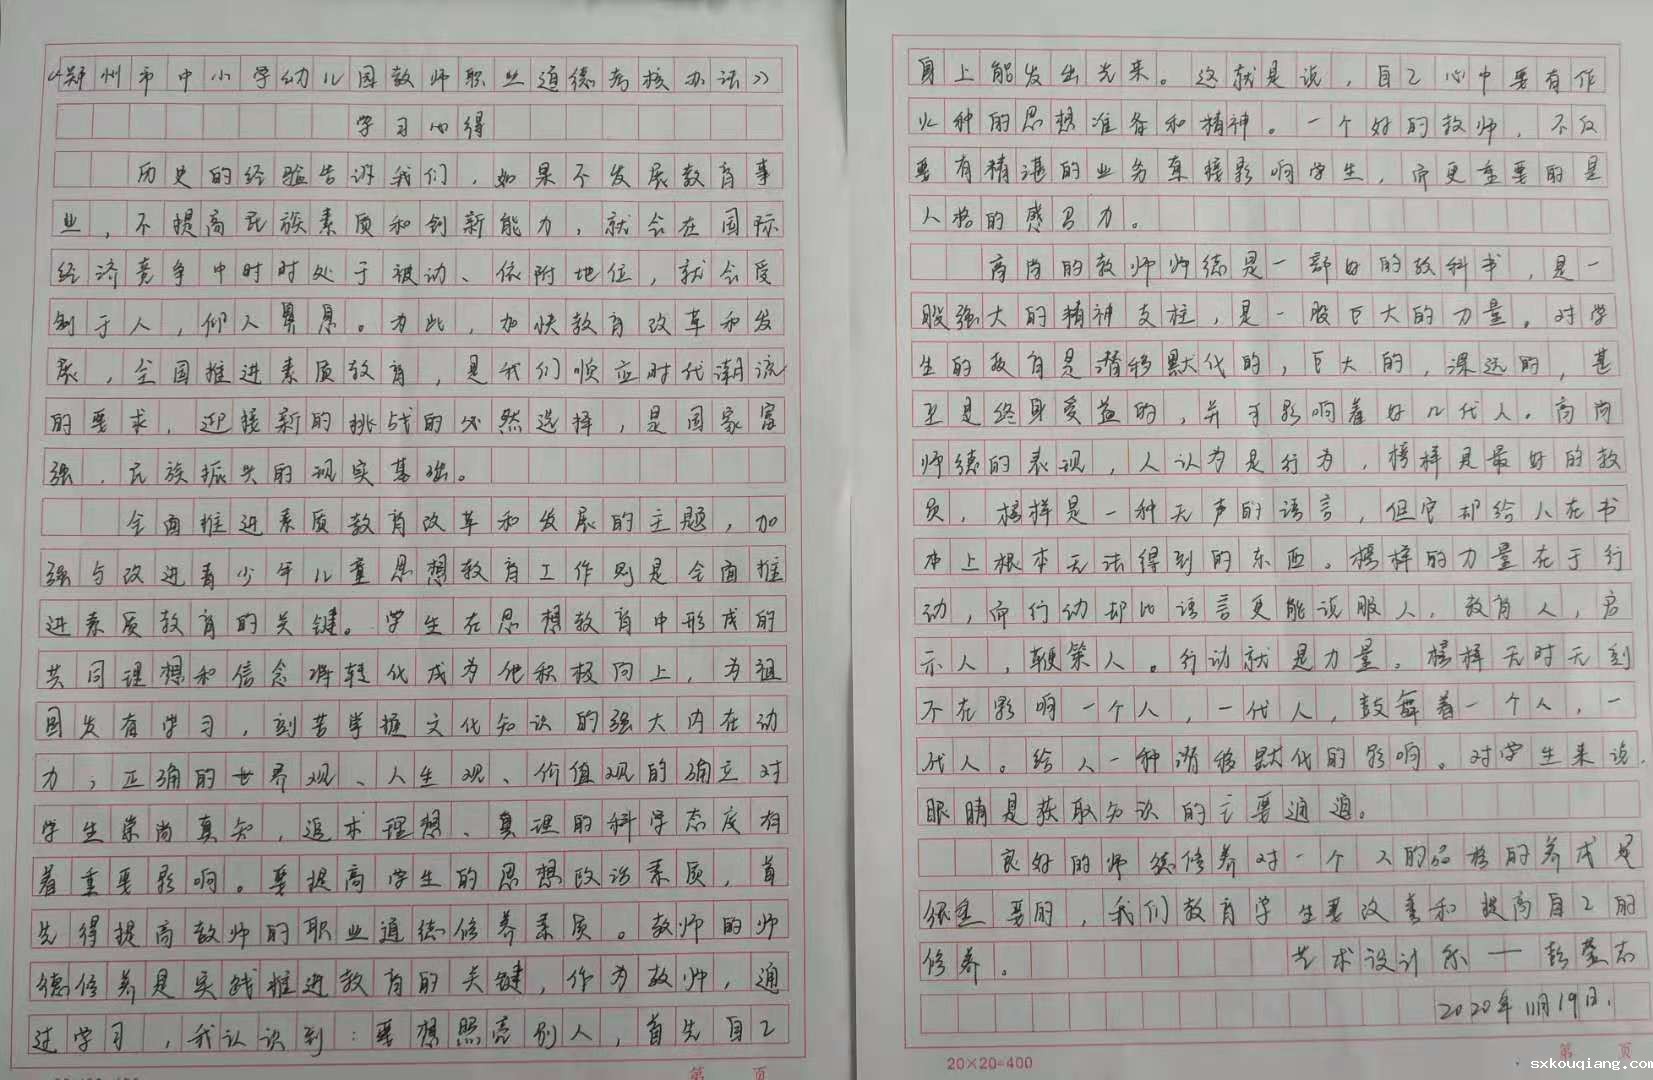 《郑州市中小学幼儿园教师职业道德考核办法》
学习心得
历史的经验告诉我们，如果不发展教育事
业，不提高民族素质和创新能力，就会在国际
经济竞争中时时处于被动、依附地位，就会受
制于人，仰人鼻息。为此，加快教育改革和发
展，全国推进素质教育，是我们顺应时代潮流
的要求，迎接新的挑战的必然选择，是国家富
强，民族振兴的现实基础。
全面推进素质教育改革和发展的主题，加
强与改进青少年儿童思想教育工作则是全面推
进素质教育的关键。学生在思想教育中形成的
共同理想和信念将转化成为他积极向上，为祖
国发奋学习，刻苦掌握文化知识的强大内在动
力；正确的世界观、人生观、价值观的确立对
学生崇尚真知，追求理想、真理的科学态度有
着重要影响。要提高学生的思想政治素质，首
先得提高教师的职业道德修养素质。教师的师
德修养是实践推进教育的关键，作为教师，通
过学习，我认识到：要想照亮别人，首先自己
身上能发出光来。这就是说，自己心中要有作
火种的思想准备和精神。一个好的教师，不仅
要有精湛的业务直接影响学生，而更重要的是
人格的感召力。
高尚的教师师德是一部好的教科书，是一
股强大的精神支柱，是一股巨大的力量。对学
生的教育是潜移默化的，巨大的，深远的，甚
至是终身受益的，并可影响着好几代人。高尚
师德的表现，人认为是行为，榜样是最好的教
员，榜样是一种无声的语言，但它却给人在书
本上根本无法得到的东西。榜样的力量在于行
动，而行动却比语言更能说服人，教育人，启
示人，鞭策人。行动就是力量。榜样无时无刻
不在影响一个人，一代人，鼓舞着一个人，一
代人。给人一种潜移默化的影响。对学生来说，
眼睛是获取知识的主要通道。
良好的师德修养对一个人的品格的养成是
很重要的，我们教育学生要改善和提高自己的
修养。 艺术设计系——彭
2020年11月19日.
20×20=400
第 页
第 页
sxkouqiang.com